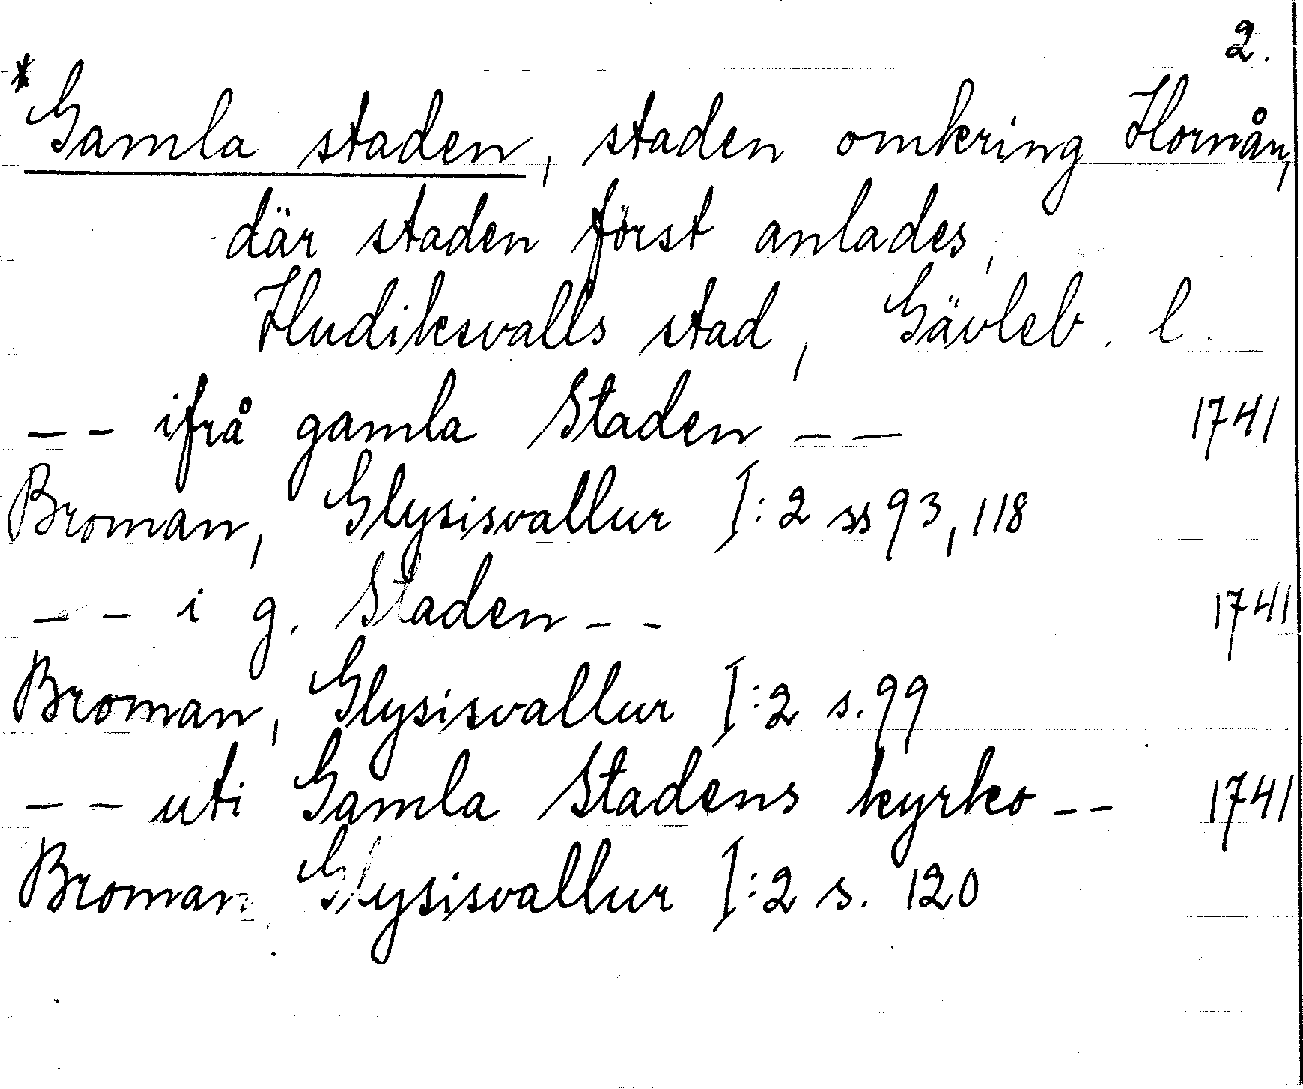 2.
*Gamla staden, staden omkring Hornån,
där staden först anlades,
Hudiksvalls stad, Gävleb. l.
-- ifrå gamla Staden -- 1741
Broman, Glysisvallur I:2 ss 93, 118
-- i g. Staden -- 1741
Broman, Glysisvallur I:2 s. 99
-- uti Gamla Stadens kyrko -- 1741
Broman, Glysisvallur I:2 s. 120